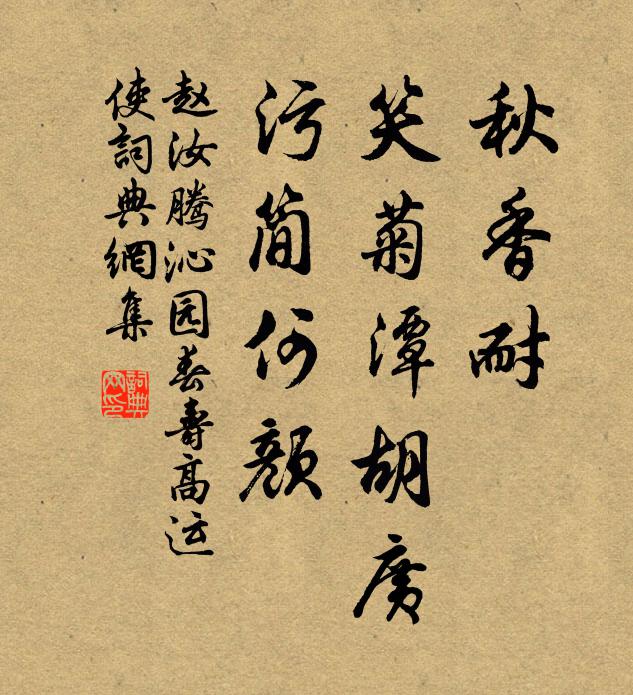 秋香耐
笑菊潭胡廣
污简何颜
赵汝腾沁园春壽高运
使詞典網集
詞典
网印